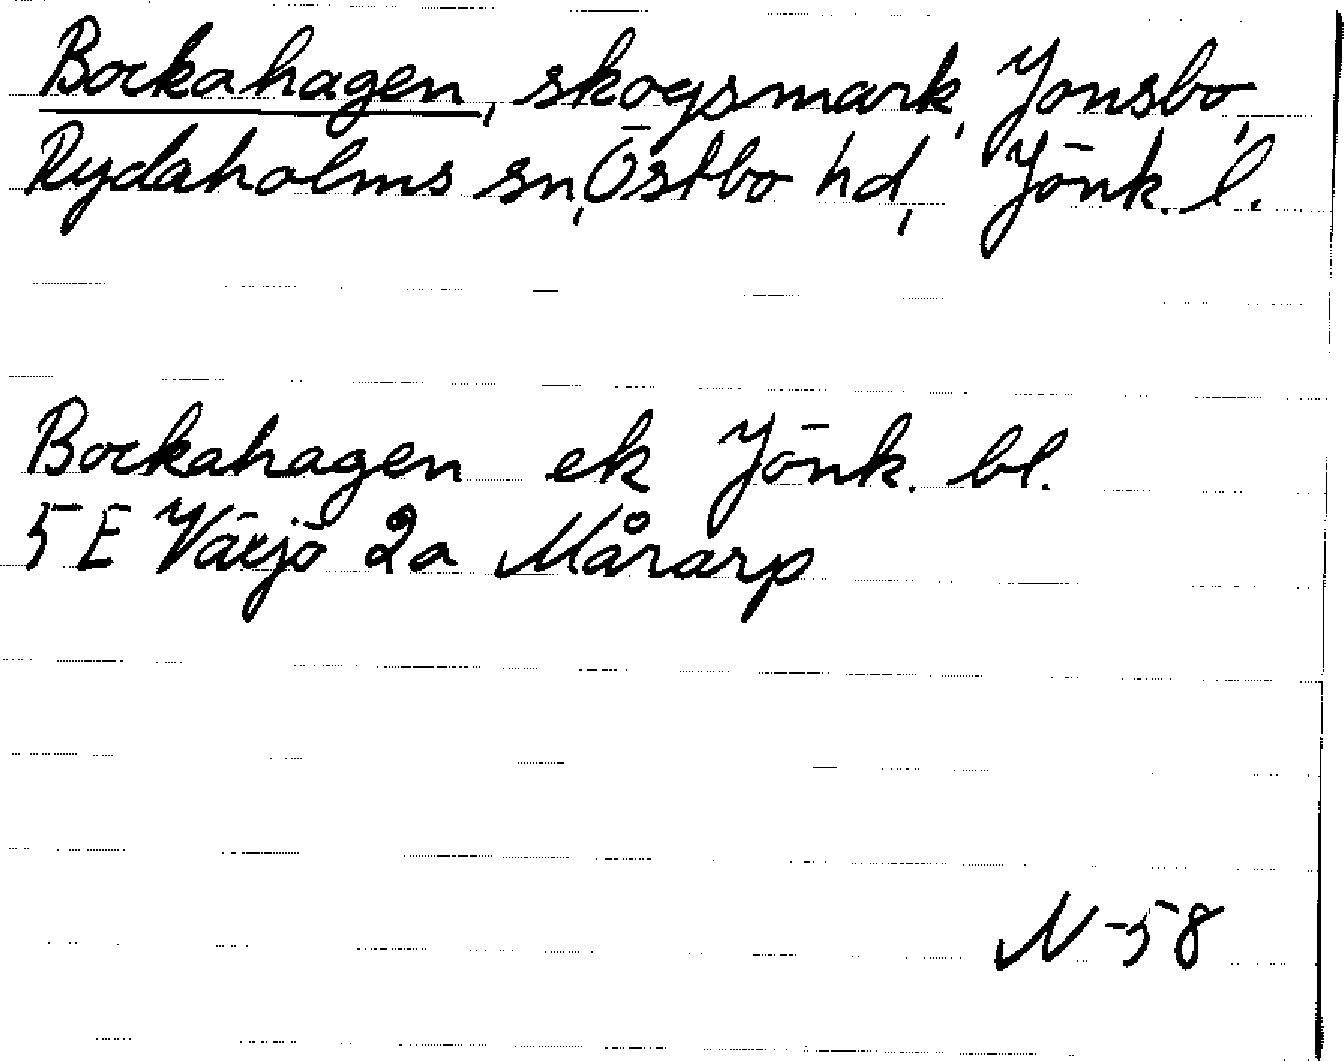 Bockahagen, skogsmark, Jonsbo,
Rydaholms sn, Östbo hd, Jönk. l.
Bockahagen ek Jönk. bl.
5 E Växjö 2a Mårarp
N-58